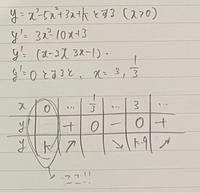 y=x³-5x²+3x+kとする (x>0)
y'=3x²-10x+3
y'=(x-3)(3x-1).
y'=0とすると、x=3, 1/3
x 0 … 1/3 … 3 …
y' + 0 - 0 + 
y k ↗ ↘ k-9 ↗
ここ!!